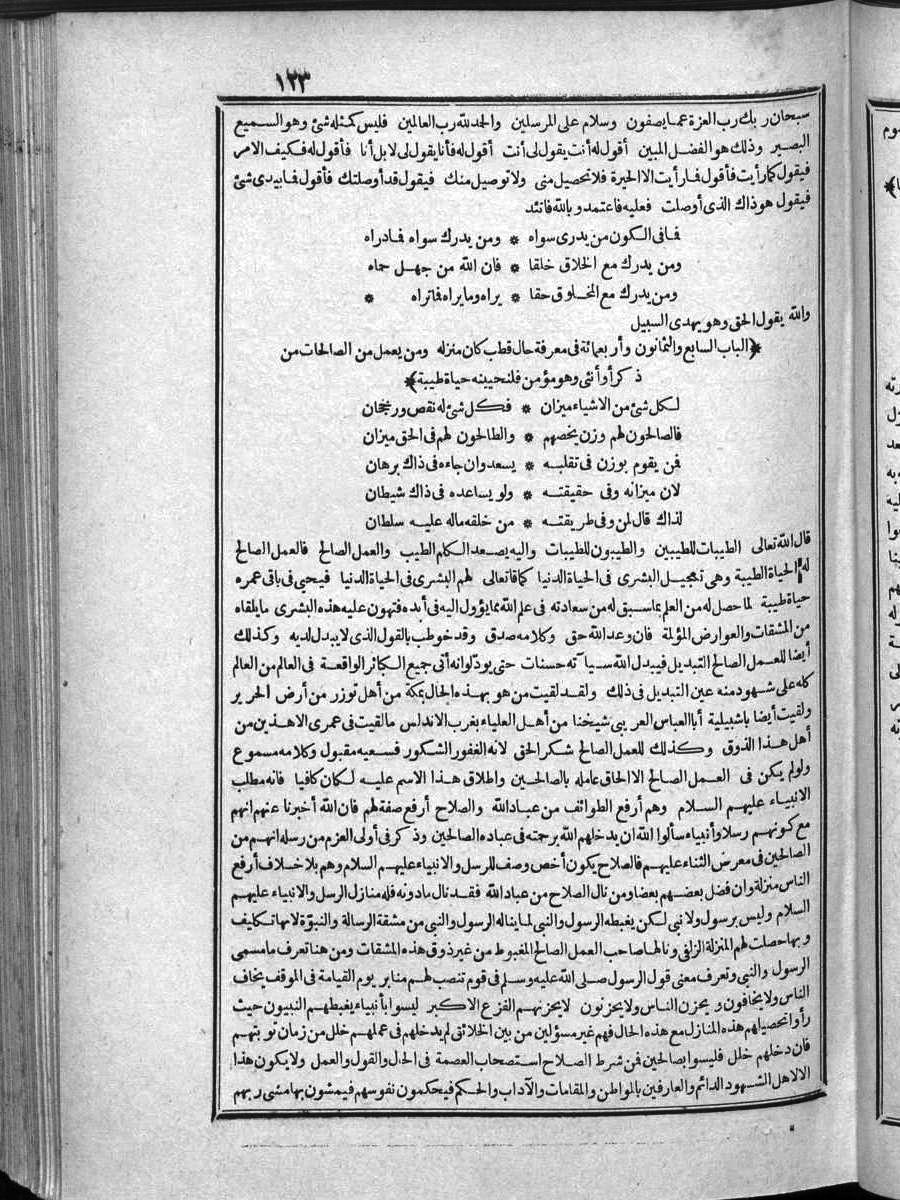 ١٢٣
سبحان ربك رب العزة عما يصفون وسلام على المرسلين والحمد لله رب العالمين فليس كمثله شئ وهو السميع
البصير وذلك هو الفضل المبين أقول له أنت يقول لى أنت أقول له فأنا يقول لى لا بل أنا فأقول له فكيف الامر
فيقول كما رأيت فأقول فما رأيت الا الحيرة فلا تحصيل منى ولا توصيل منك فيقول قد أوصلتك فأقول فما بيدى شئ
فيقول هو ذاك الذى أوصلت فعليه فاعتمد وبالله فاتئد
فما فى الكون من يدرى سواه * ومن يدرك سواه فما دراه
ومن يدرك مع الخلاق خلقا * فان الله من جهل حماه
ومن يدرك مع المخلوق حقا * يراه وما يراه فما تراه *
والله يقول الحق وهو يهدى السبيل
﴿الباب السابع والثمانون وأربعمائة فى معرفة حال قطب كان منزله ومن يعمل من الصالحات من
ذكر أو أنثى وهو مؤمن فلنحيينه حياة طيبة﴾
لكل شئ من الاشياء ميزان * فكل شئ له نقص ورجحان
فالصالحون لهم وزن يخصهم * والطالحون لهم فى الحق ميزان
فمن يقوم بوزن فى تقلبه * يسعد وان جاءه فى ذاك برهان
لان ميزانه وفى حقيقته * ولو يساعده فى ذاك شيطان
لذاك قال لمن وفى طريقته * من خلقه ماله عليه سلطان
قال الله تعالى الطيبات للطيبين والطيبون للطيبات واليه يصعد الكلم الطيب والعمل الصالح فالعمل الصالح
له الحياة الطيبة وهى تعجيل البشرى فى الحياة الدنيا كما قال تعالى لهم البشرى فى الحياة الدنيا فيحيى فى باقى عمره
حياة طيبة لما حصل له من العلم بما سبق له من سعادته فى علم الله مما يؤول اليه فى أبده فتهون عليه هذه البشرى ما يلقاه
من المشقات والعوارض المؤلمة فان وعد الله حق وكلامه صدق وقد خوطب بالقول الذى لا يبدل لديه وكذلك
أيضا للعمل الصالح التبديل فيبدل الله سيآته حسنات حتى يود لو أنه أتى جميع الكبائر الواقعة فى العالم من العالم
كله على شهود منه عين التبديل فى ذلك ولقد لقيت من هو بهذه الحال بمكة من أهل توزر من أرض الجريد
ولقيت أيضا باشبيلية أبا العباس العريبى شيخنا من أهل العلياء بغرب الاندلس ما لقيت فى عمرى الا هذين من
أهل هذا الذوق وكذلك للعمل الصالح شكر الحق لانه الغفور الشكور فسعيه مقبول وكلامه مسموع
ولو لم يكن فى العمل الصالح الا الحاق عامله بالصالحين واطلاق هذا الاسم عليه لكان كافيا فانه مطلب
الانبياء عليهم السلام وهم أرفع الطوائف من عباد الله والصلاح أرفع صفة لهم فان الله أخبرنا عنهم انهم
مع كونهم رسلا وأنبياء سألوا الله ان يدخلهم الله برحمته فى عباده الصالحين وذكر فى أولى العزم من رسله انهم من
الصالحين فى معرض الثناء عليهم فالصلاح يكون أخص وصف للرسل والانبياء عليهم السلام وهم بلا خلاف أرفع
الناس منزلة وان فضل بعضهم بعضا ومن نال الصلاح من عباد الله فقد نال ما دونه فله منازل الرسل والانبياء عليهم
السلام وليس برسول ولا نبى لكن يغبطه الرسول والنبى لما يناله الرسول والنبى من مشقة الرسالة والنبوّة لانها تكليف
وبها حصلت لهم المنزلة الزلفى ونالها صاحب العمل الصالح المغبوط من غير ذوق هذه المشقات ومن هنا تعرف ما مسمى
الرسول والنبى وتعرف معنى قول الرسول صلى الله عليه وسلم فى قوم تنصب لهم منابر يوم القيامة فى الموقف يخاف
الناس ولا يخافون ويحزن الناس ولا يحزنون لا يحزنهم الفزع الاكبر ليسوا بأنبياء يغبطهم النبيون حيث
رأوا تحصيلهم هذه المنازل مع هذه الحال فهم غير مسؤلين من بين الخلائق لم يدخلهم فى عملهم خلل من زمان توبتهم
فان دخلهم خلل فليسوا بصالحين فمن شرط الصلاح استصحاب العصمة فى الحال والقول والعمل ولا يكون هذا
الا لاهل الشهود الدائم والعارفين بالمواطن والمقامات والآداب والحكم فيحكمون نفوسهم فيمشون بها مشى ربهم